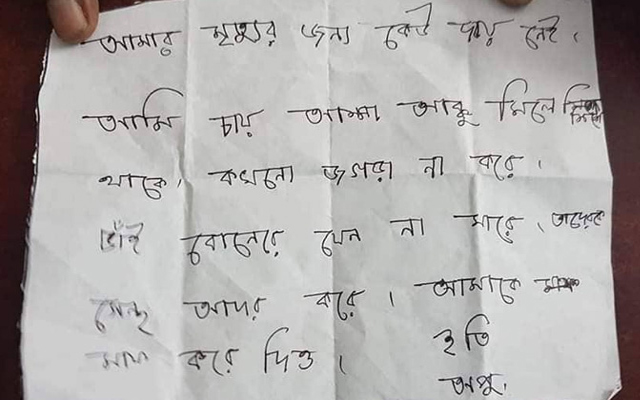 আমার মৃত্যুর জন্য কেউ দায় নেই।
আমি চায় আম্মা আব্বু মিলে মিলে
থাকে। কখনো জগড়া না করে।
ভাই বোনেরে যেন না মারে। তাদেরকে
আদর করে। আমাকে
মাপ করে দিও। ইতি
অপু।